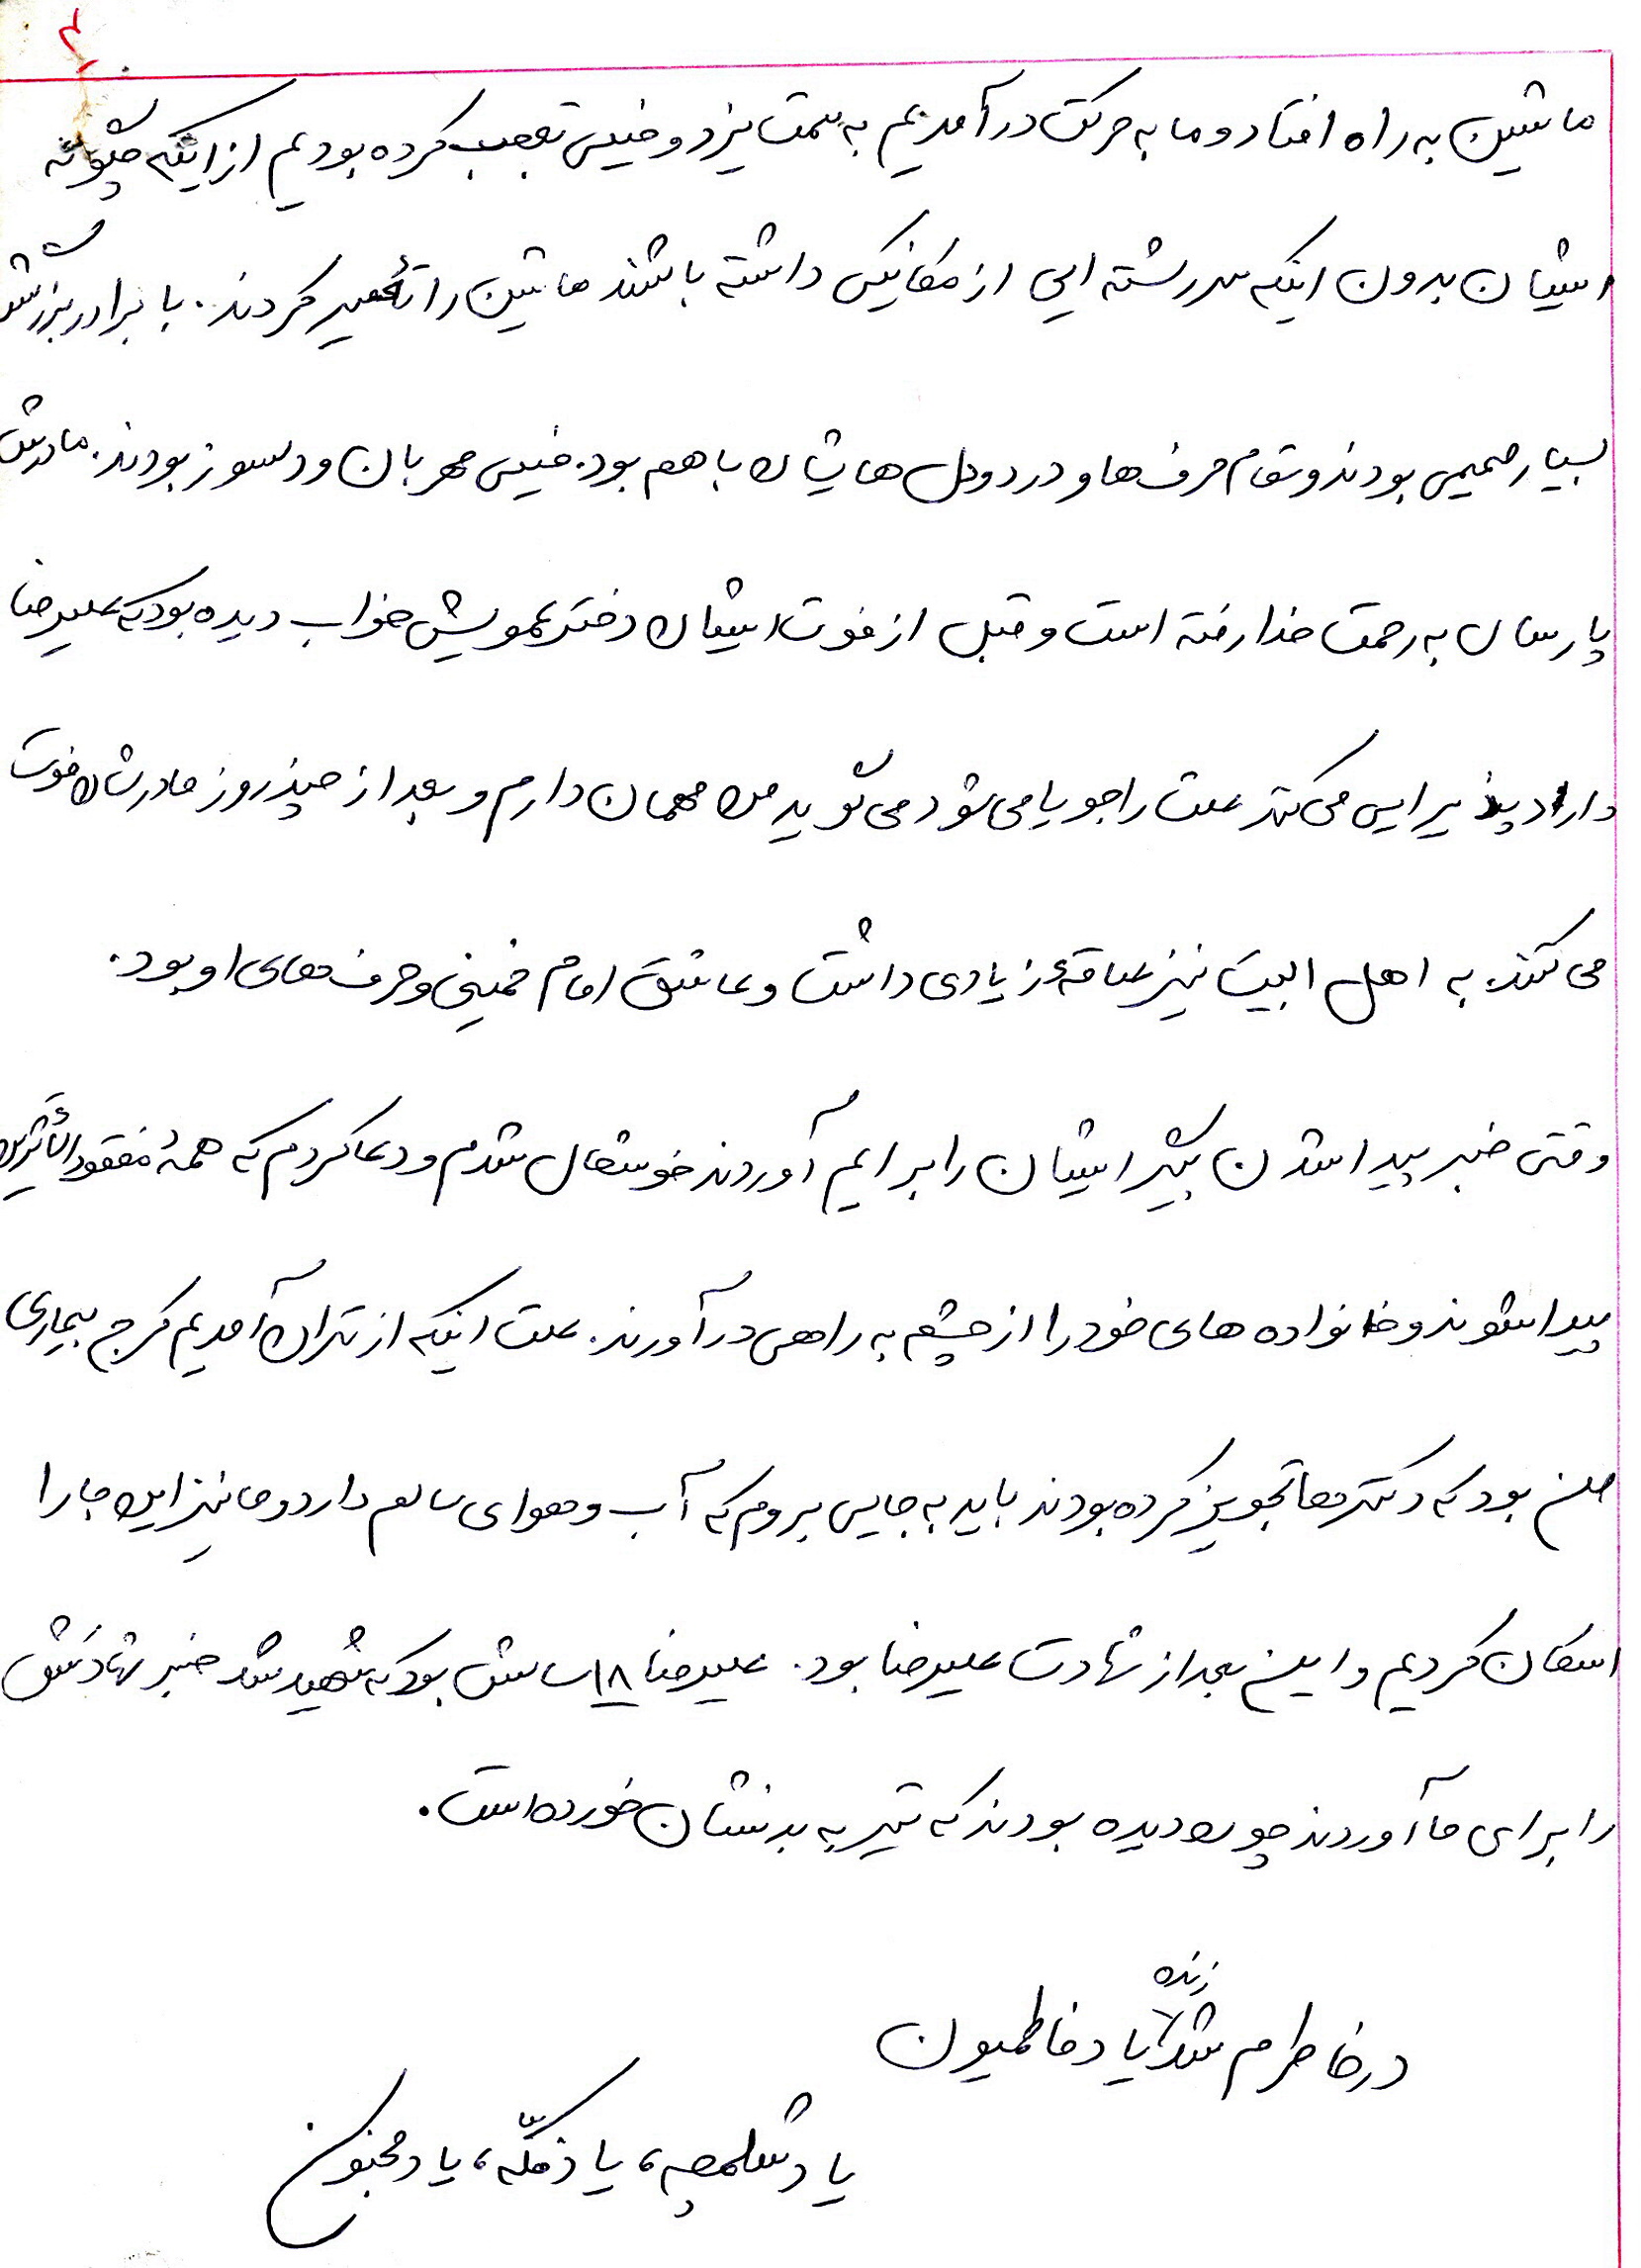 ۳
ماشین به راه افتاد و ما به حرکت در آمدیم به سمت یزد و خیلی تعجب کرده بودیم از اینکه چگونه
ایشان بدون اینکه سر رشته ایی از مکانیکی داشته باشند ماشین را تعمیر کردند. با برادر بزرگش
بسیار صمیمی بودند و تمام حرف ها و درد و دل هایشان با هم بود. خیلی مهربان و دلسوز بودند. مادرش
پارسال به رحمت خدا رفته است و قبل از فوت ایشان دختر عمویش خواب دیده بود که علیرضا
دارد پذیرایی می کند علت را جویا می شود می گوید من مهمان دارم و بعد از چند روز مادرشان فوت
می کند. به اهل البیت نیز علاقهٔ زیادی داشت و عاشق امام خمینی و حرف های او بود.
وقتی خبر پیدا شدن پیکر ایشان را برایم آوردند خوشحال شدم و دعا کردم که همهٔ مفقود الأثرین
پیدا شوند و خانواده های خود را از چشم به راهی در آورند. علت اینکه از تهران آمدیم کرج بیماری
من بود که دکترها تجویز کرده بودند باید به جایی بروم که آب و هوای سالم دارد و ما نیز این جا را
اسکان کردیم و این بعد از شهادت علیرضا بود. علیرضا ۱۸ سالش بود که شهید شد خبر شهادتش
را برای ما آوردند چون دیده بودند که تیر به بدنشان خورده است.
زنده
در خاطرم شد یاد فاطمیون
یاد شلمچه، یاد فکّه، یاد مجنون